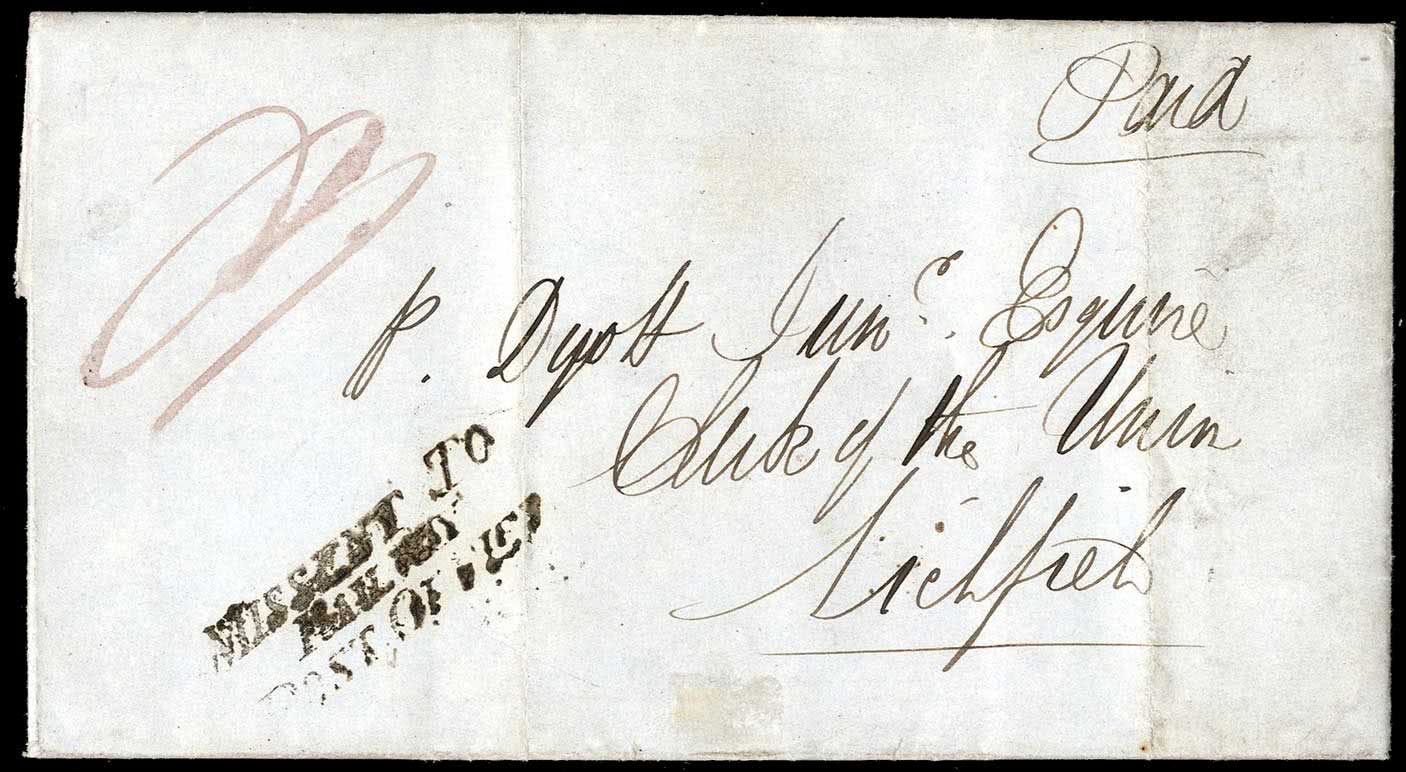 Paid
P. Dyott Junr. Esquire
Clerk of the Union
Lichfield
MISSENT TO
RAILWAY
POST OFFICE